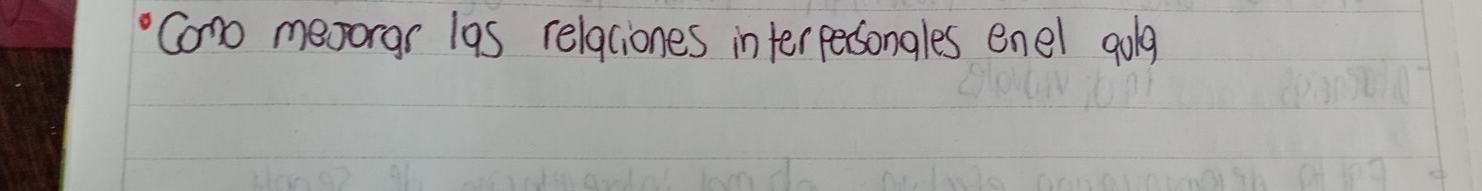 • Como mejorar las relaciones interpersonales en el aula